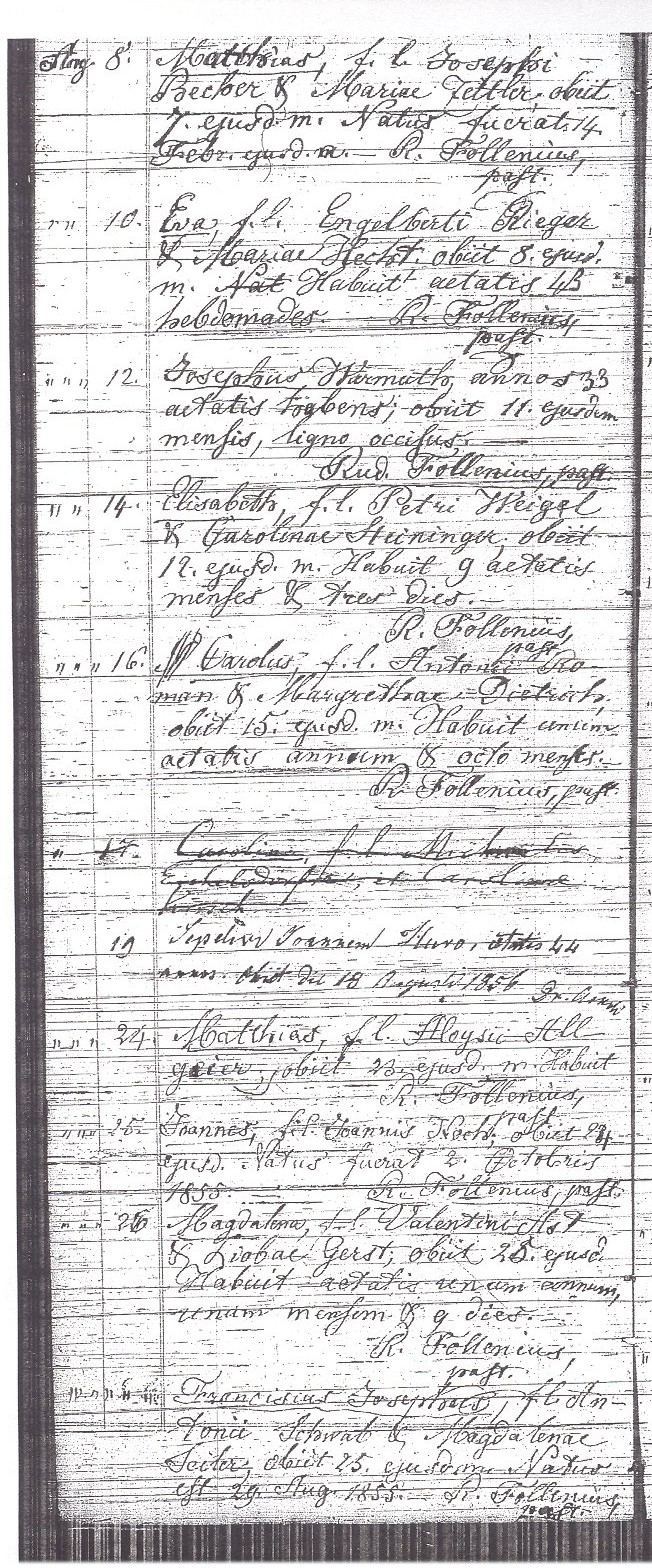 Aug. 8. Matthias, f. l. Josephi
Becher & Mariae Zettler obiit
7. ejusd. m. Natus fuerat 14.
Febr. ejusd. a. — R. Follenius,
past.
" " 10. Eva, f. l. Engelberti Rieger
& Mariae Hecht. obiit 8. ejusd.
m. Nat Habuit aetatis
hebdomades R. Follenius,
past.
" " " 12. Josephus Warmuth, annos 33
aetatis habens, obiit 11. ejusdem
mensis, ligno occisus. —
Rud. Follenius, past.
" " 14. Elisabeth, f. l. Petri Weigel
& Carolinae Steininger, obiit
12. ejusd. m. Habuit 9 aetatis
menses & tres dies. —
R. Follenius,
past.
" " " 16. Carolus, f. l. Antonii Ro-
man & Margrethae Dietrich,
obiit 15. ejusd. m. Habuit unum
aetatis annum & octo menses. —
R. Follenius, past.
" 17. Carolina, f. l.
et Carolinae
19 Sepelivi Joannem aetatis 44
annos. obiit die 18 Augusti 1856
" " " 24. Matthias, f. l. Aloysii All
geier, obiit 23. ejusd. m. Habuit
R. Follenius,
past.
" " " 25. Joannes, f. l. Joannis Koch, obiit 24.
ejusd. Natus fuerat 2. Octobris
1855. — R. Follenius, past.
" " " 26 Magdalena, f. l. Valentini Ast
& Liobae Gerst, obiit 25. ejusd.
Habuit aetatis unum annum,
unum mensem & 9 dies. —
R. Follenius,
past.
" " " " " Franciscus Josephus, f. l. An-
tonii Schwab & Magdalenae
Seiler, obiit 25. ejusdem Natus
est 29. Aug. 1855. — R. Follenius,
past.